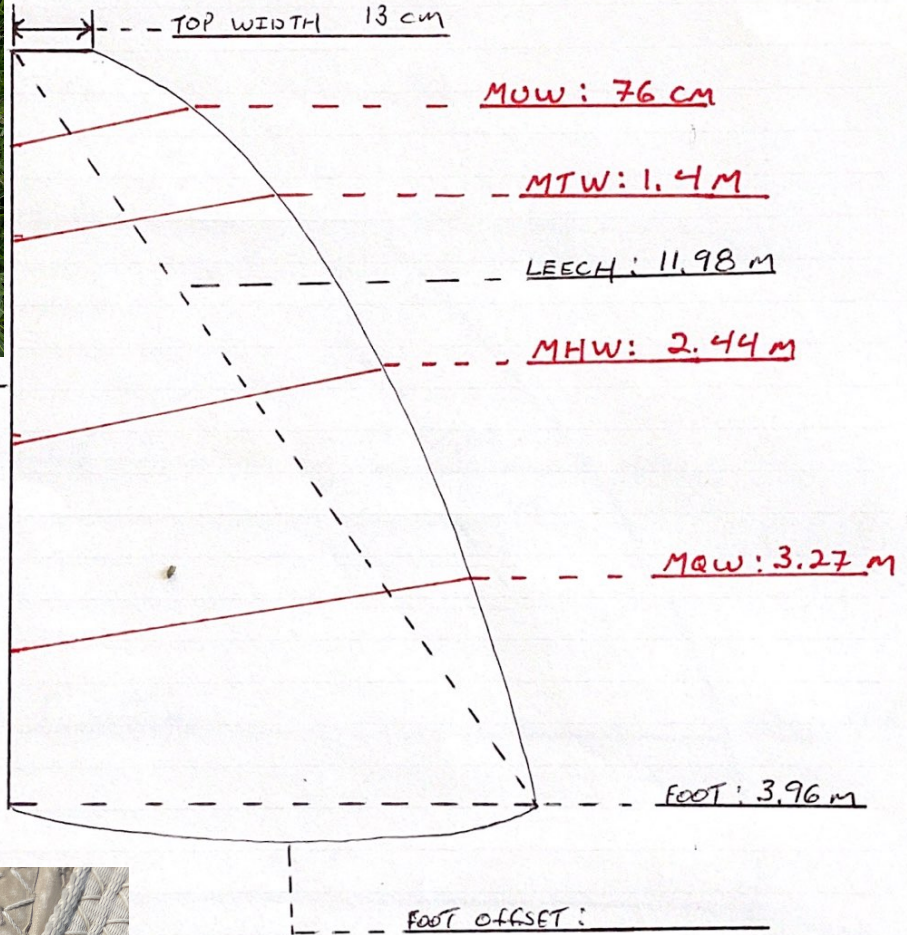 TOP WIDTH 13 cm
MUW: 76 CM
MTW: 1.4 M
LEECH: 11.98 M
MHW: 2.44 M
MQW: 3.27 M
FOOT: 3.96 M
FOOT OFFSET: